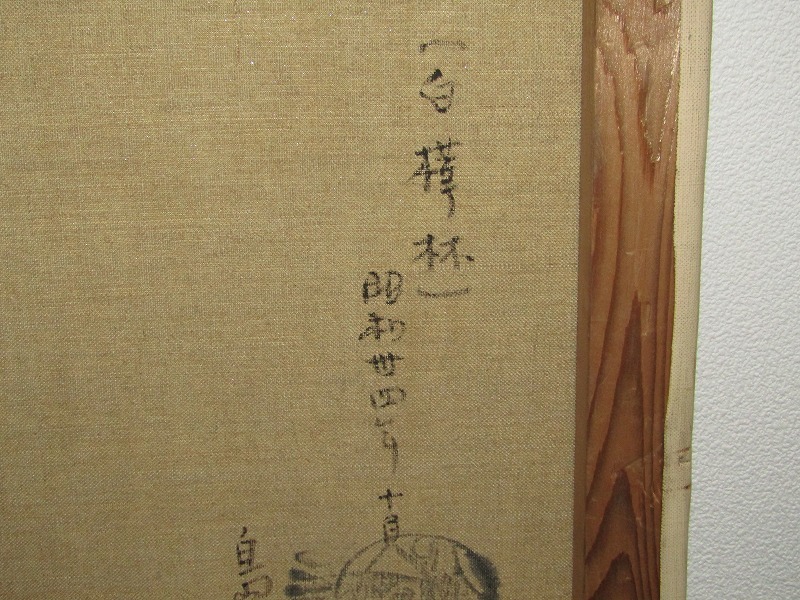 （白樺林）
昭和卅四年十月